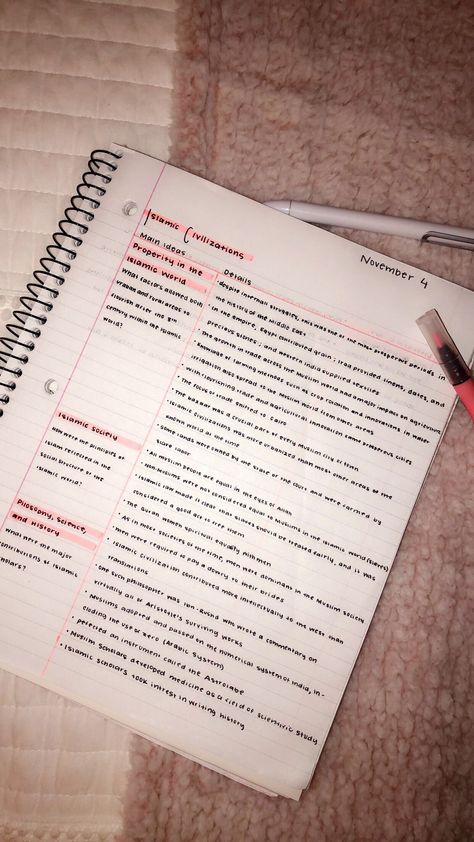 November 4
Islamic Civilizations
Main ideas
Details
Properity in the
Islamic World
What factors allowed both
urban and rural areas to
flourish after the 8th
century within the Islamic
World?
• despite internal struggles, this was one of the most prosperous periods in
the history of the Middle East
• In the empire, Egypt contributed grain; Iraq provided linens, dates, and
precious stones; and western India supplied textiles
• The growth in trade across the Muslim world had a major impact on agriculture
• Knowledge of farming methods such as crop rotation and innovations in water
irrigation also spread to the Muslim world from other areas
• With flourishing trade and agricultural innovation came prosperous cities
• The focus of trade shifted to Cairo
• The bazaar was a crucial part of every Muslim city or town
• Islamic civilizations was more organized than most other areas of the
known world at the time
• Some lands were owned by the state or the court and were farmed by
slave labor
Islamic Society
How were the principles of
Islam reflected in the
social structure of the
Islamic world?
• All Muslim people are equal in the eyes of Allah
• Non-Muslims were not considered equal to Muslims in the Islamic world (slaves)
• Islamic law made it clear that slaves should be treated fairly, and it was
considered a good act to free them
• The Quran women spiritual equally with men
• As in most societies of the time, men were dominant in the Muslim society
• Men were required to pay a dowry to their brides
Pilosophy, Science,
and History
What were the major
contributions of Islamic
scholars?
• Islamic civilization contributed more intellectually to the West than
translations
• One such philosopher was Ibn-Rushd who wrote a commentary on
virtually all of Aristotle's surviving works
• Muslims adopted and passed on the numerical system of India, in-
cluding the use of zero (Arabic system)
• perfected an instrument called the Astrolabe
• Muslim scholars developed medicine as a field of scientific study
• Islamic scholars took intrest in writing history